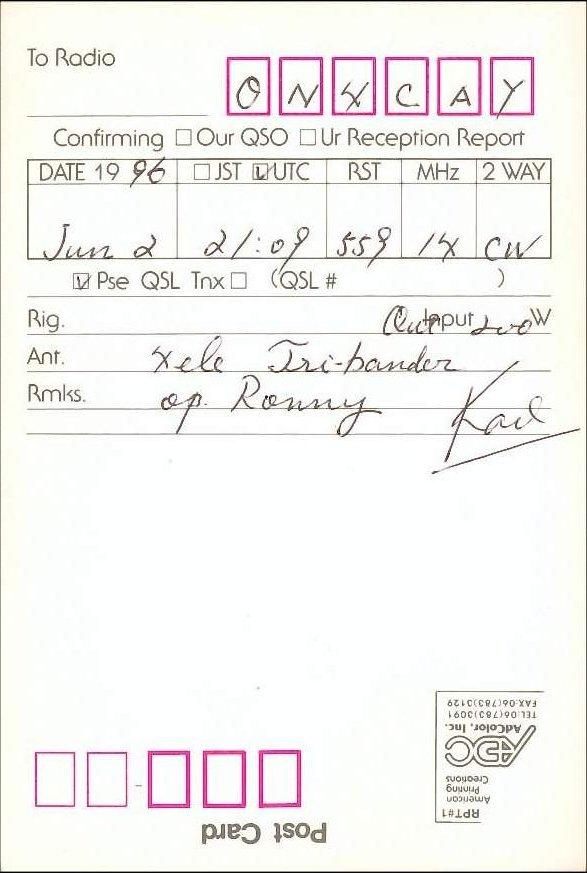 To Radio ON4CAY
Confirming □Our QSO □Ur Reception Report
DATE 19 96 □JST ☑UTC RST MHz 2 WAY
Jun 2 21:09 559 14 CW
☑Pse QSL Tnx□ (QSL # )
Rig. Out Input 200 W
Ant. 4ele Tri-bander
Rmks. op. Ronny
Post Card
RPT#1
American
Printing
Creations
ADC
AdColor, Inc.
TEL:06(783)3091
FAX:06(783)3129